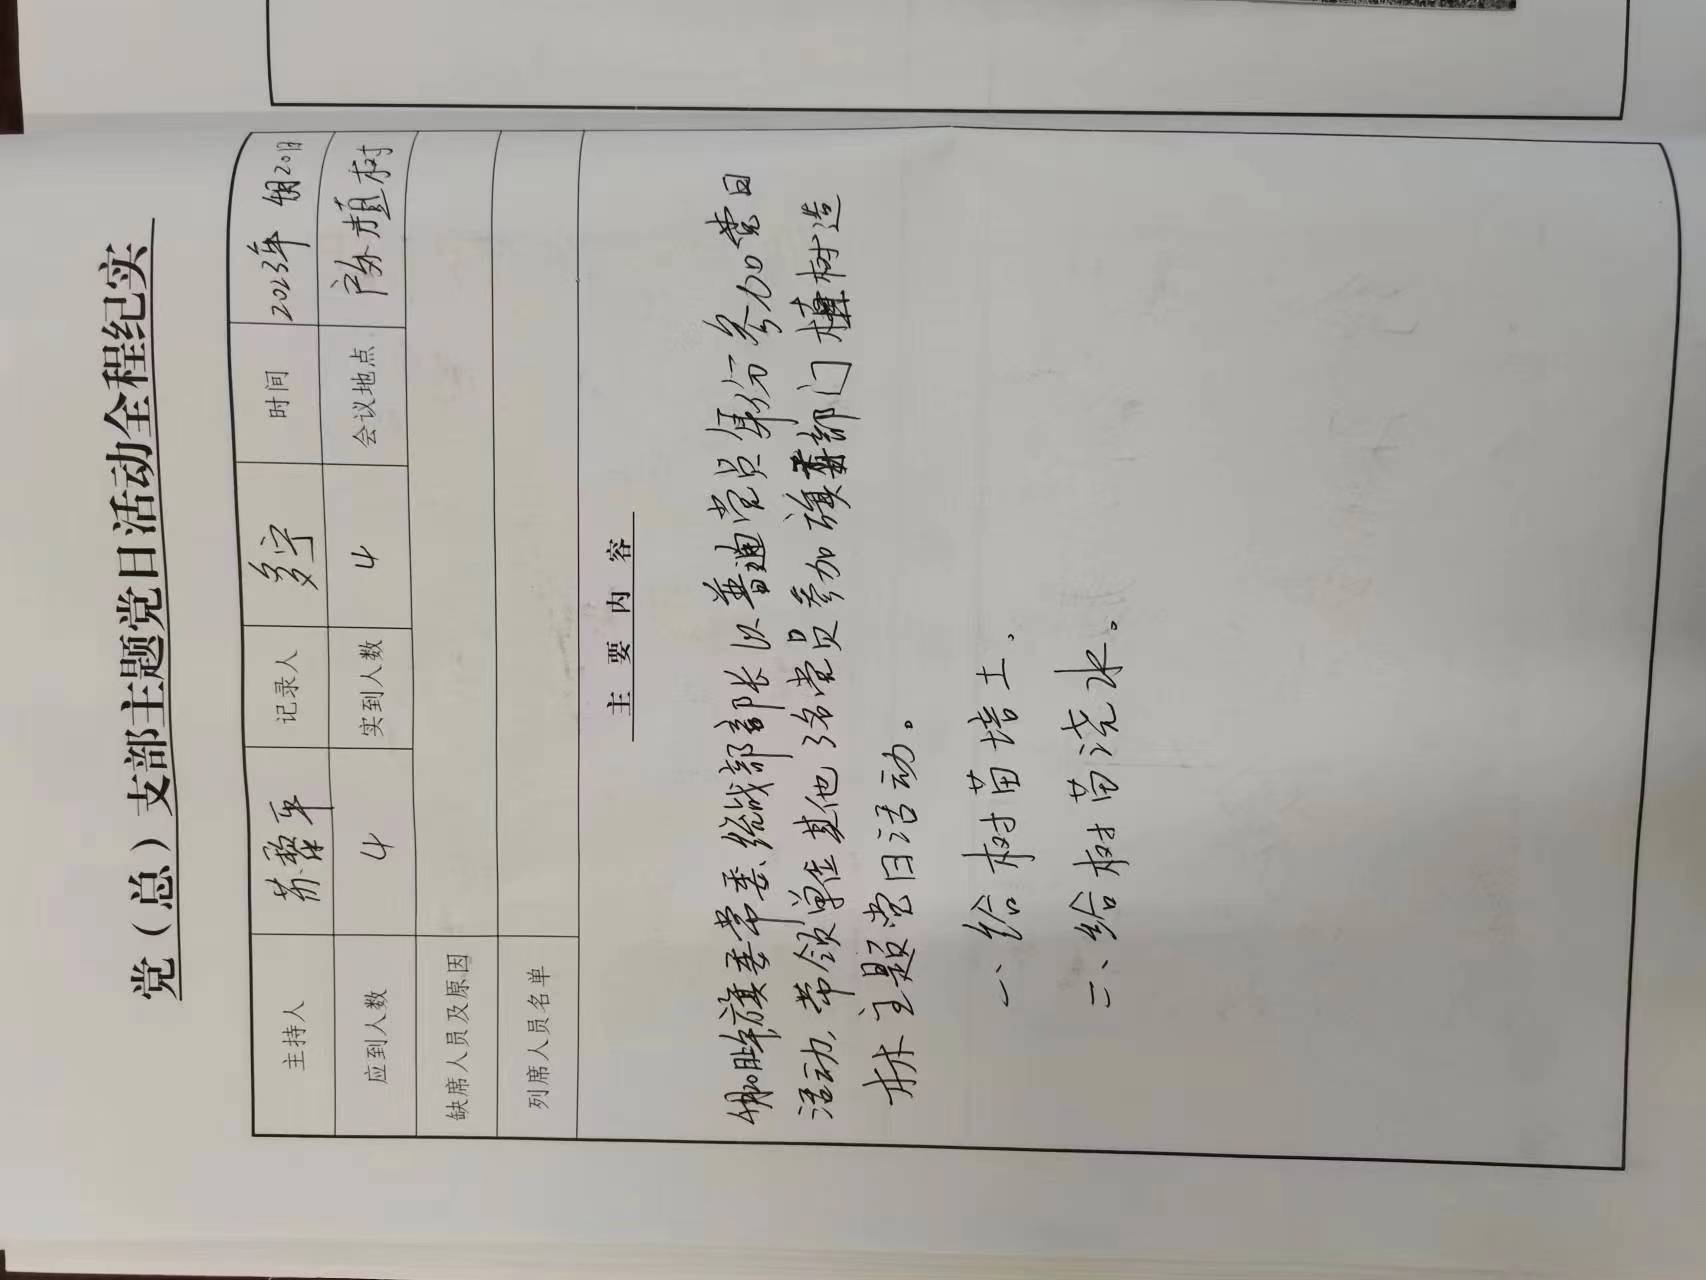 党（总）支部主题党日活动全程纪实
主持人 苏黎平 记录人 多宁 时间 2023年4月20日
应到人数 4 实到人数 4 会议地点 户外植树
缺席人员及原因
列席人员名单
主要内容
4月20日旗委常委、统战部部长以普通党员身份参加党日
活动，带领单位其他3名党员参加旗委部门植树造
林主题党日活动。
一、给树苗培土、
二、给树苗浇水。